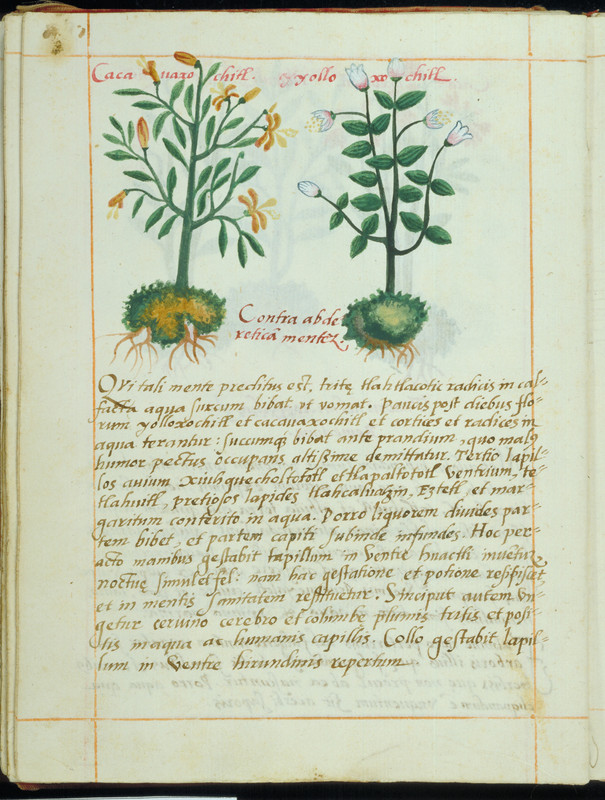 Caca uaxo chitl. yollo xo chitl.
Contra abde=
reticā mentez.
Qvi tali mente preditus est, tritę tlahtlacotic radicis in cal=
facta aqua surcum bibat vt vomat. Paucis post diebus flo=
rum yolloxochitl et cacauaxochitl et cortices et radices in
aqua terantur: succumq; bibat ante prandium, quo malꝰ
humor pectus occupans altißime demittatur. Tertio lapil=
los auium Xiuhquecholtototl et tlapaltototl Ventrium, te=
tlahuitl, pretiosos lapides tlahcalhuatzin, Eztetl, et mar=
garitum conterito in aqua. Porro liquorem diuides par=
tem bibet, et partem capiti subinde infundes. Hoc per=
acto manibus gestabit lapillum in Ventre huactli inuētū
noctuę simul et fel: nam hac gestatione et potione resipiscet,
et in mentis sanitatem restituetur. Sinciput autem vn=
getur ceruino cerebro et columbę plumis tritis et posi=
tis in aqua ac humanis capillis. Collo gestabit lapil=
lum in Ventre hirundinis repertum.